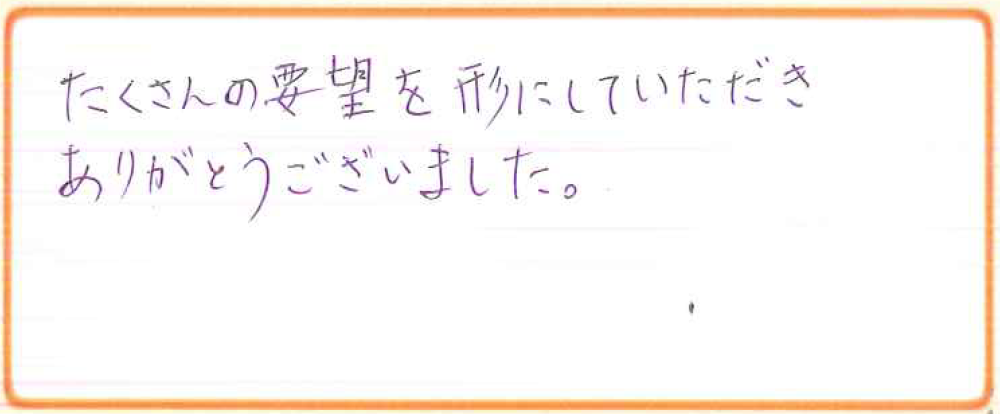 たくさんの要望を形にしていただき
ありがとうございました。